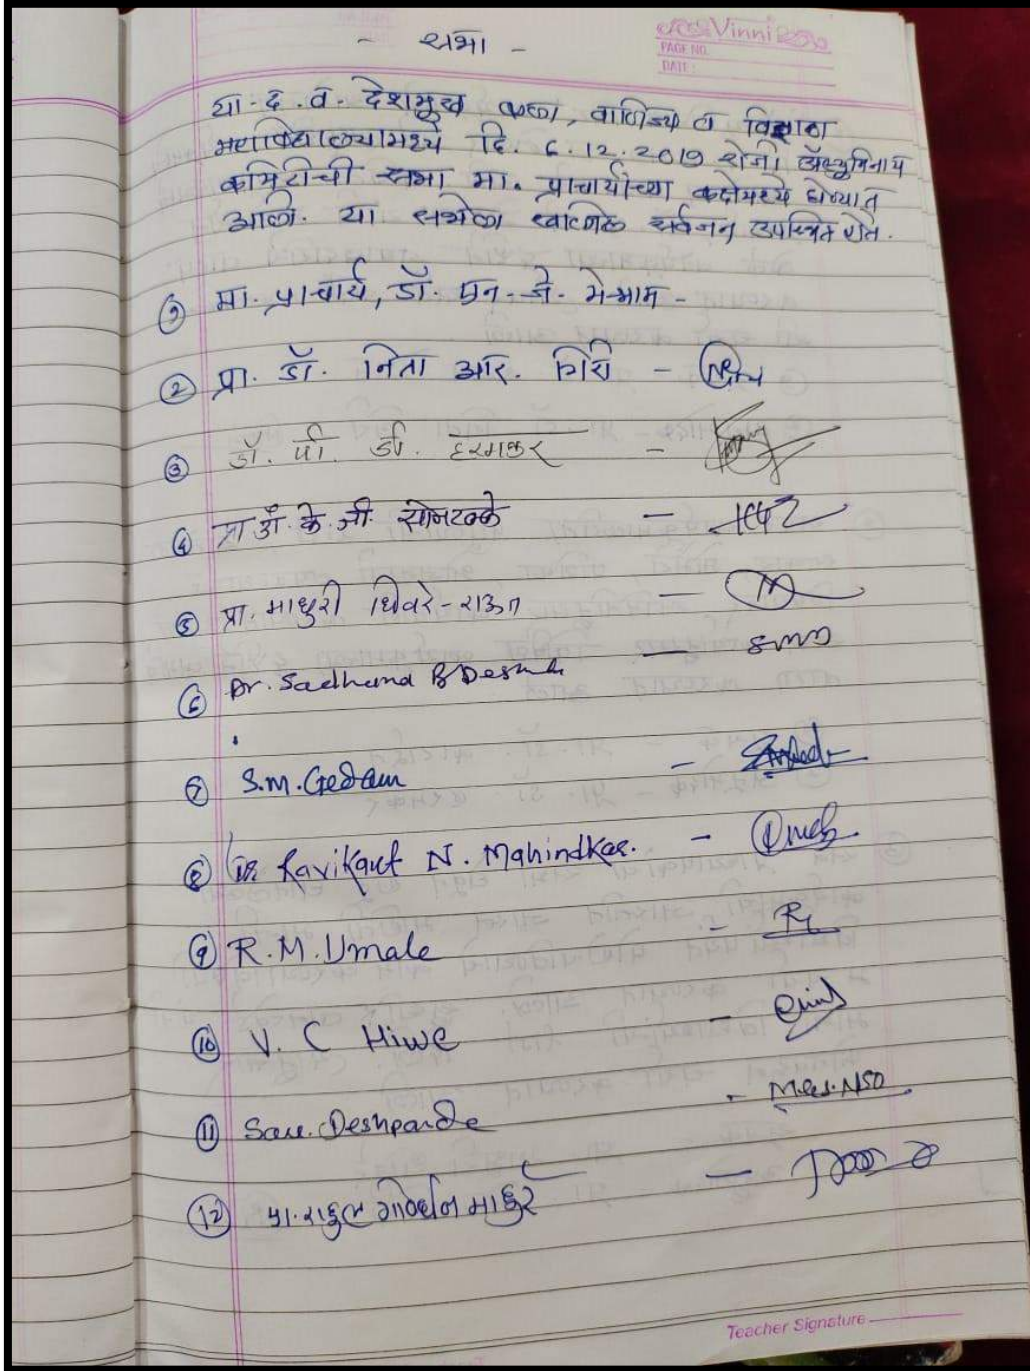 - सभा -
Vinni
PAGE NO.
DATE:
या. द. व. देशमुख कला, वाणिज्य व विज्ञान
महाविद्यालयामध्ये दि. 6.12.2019 रोजी ॲल्युमिनाय
कमिटीची सभा मा. प्राचार्यांच्या कक्षेमध्ये घेण्यात
आली. या सभेला खालील सर्वजन उपस्थित होते.
① मा. प्राचार्य, डॉ. एन. जे. मेश्राम -
② प्रा. डॉ. निता आर. गिरी -
③ डॉ. पी. डी. हरमकर -
④ प्रा डॉ. के. जी. -
⑤ प्रा. माधुरी धिवरे-राऊत -
⑥ Dr. Sadhana B Deshm -
⑦ S.M. Gedam -
⑧ Dr Ravikant N. Mahindkar. -
⑨ R.M. Umale -
⑩ V. C Hiwe -
⑪ Sau. Deshpande -
⑫ प्रा. राहुल गोवर्धन माहुरे -
Teacher Signature